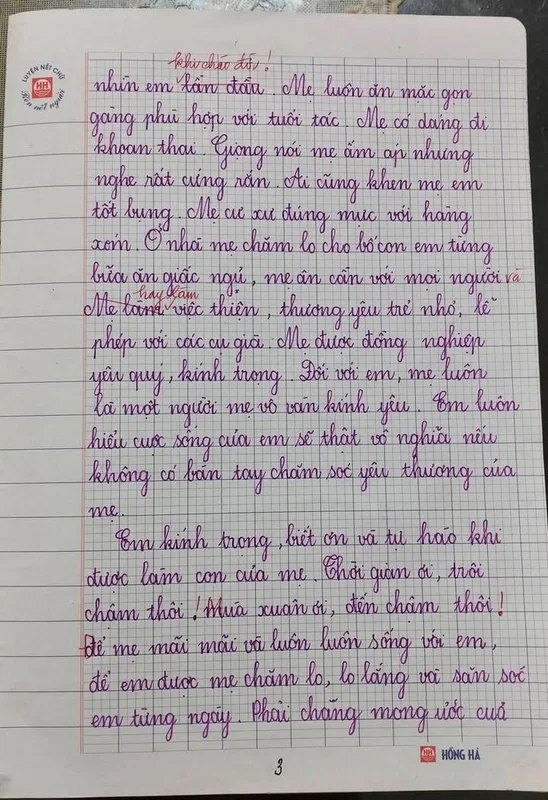 LUYỆN NẾT CHỮ
HH
Rèn nết người
khi chào đời!
nhìn em lần đầu. Mẹ luôn ăn mặc gọn
gàng phù hợp với tuổi tác. Mẹ có dáng đi
khoan thai. Giọng nói mẹ ấm áp nhưng
nghe rất cứng rắn. Ai cũng khen mẹ em
tốt bụng. Mẹ cư xử đúng mực với hàng
xóm. Ở nhà mẹ chăm lo cho bố con em từng
bữa ăn giấc ngủ, mẹ ân cần với mọi người và
hay làm
Mẹ làm việc thiện, thương yêu trẻ nhỏ, lễ
phép với các cụ già. Mẹ được đồng nghiệp
yêu quý, kính trọng. Đối với em, mẹ luôn
là một người mẹ vô vàn kính yêu. Em luôn
hiểu cuộc sống của em sẽ thật vô nghĩa nếu
không có bàn tay chăm sóc yêu thương của
mẹ.
Em kính trọng, biết ơn và tự hào khi
được làm con của mẹ. Thời gian ơi, trôi
chậm thôi! Mùa xuân ơi, đến chậm thôi!
Để mẹ mãi mãi và luôn luôn sống với em,
để em được mẹ chăm lo, lo lắng và săn sóc
em từng ngày. Phải chăng mong ước của
HH HỒNG HÀ
3